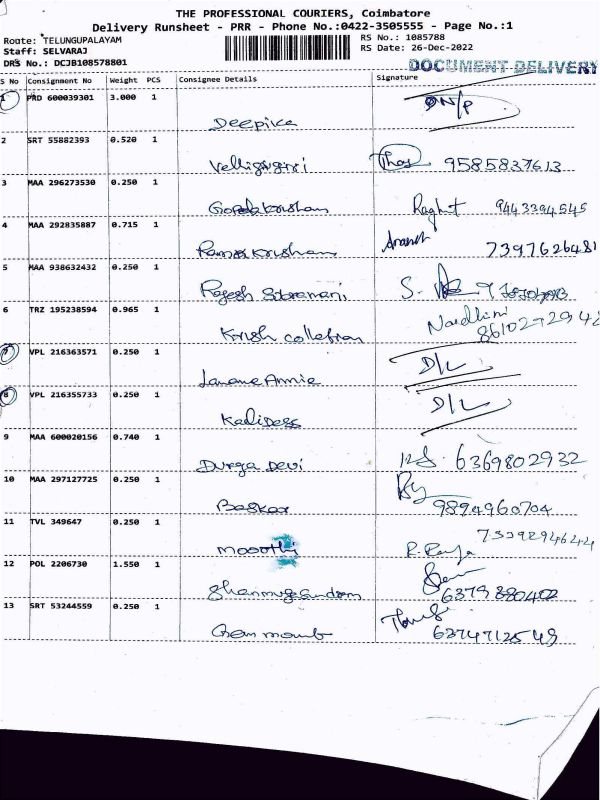 THE PROFESSIONAL COURIERS, Coimbatore
Delivery Runsheet - PRR - Phone No.:0422-3505555 - Page No.:1
Route: TELUNGUPALAYAM RS No.: 1085788
Staff: SELVARAJ RS Date: 26-Dec-2022
DRS No.: DCJB108578801 DOCUMENT DELIVERY
S No Consignment No Weight PCS Consignee Details Signature
1 PRD 600039301 3.000 1
Deepika
2 SRT 55882393 0.520 1
9585837613
3 MAA 296273530 0.250 1
Gopalakrishnan 9443394545
4 MAA 292835887 0.715 1
Ramakrishnan 7397626481
5 MAA 938632432 0.250 1
Rajesh
6 TRZ 195238594 0.965 1
Krish collection 8610272942
7 VPL 216363571 0.250 1 D/L
8 VPL 216355733 0.250 1 D/L
Kalidess
9 MAA 600020156 0.740 1
Durga Devi 6369802932
10 MAA 297127725 0.250 1
Baskar 9894960704
11 TVL 349647 0.250 1
Mooothi R. Raja
12 POL 2206730 1.550 1
Shanmugasundram 6379380402
13 SRT 53244559 0.250 1